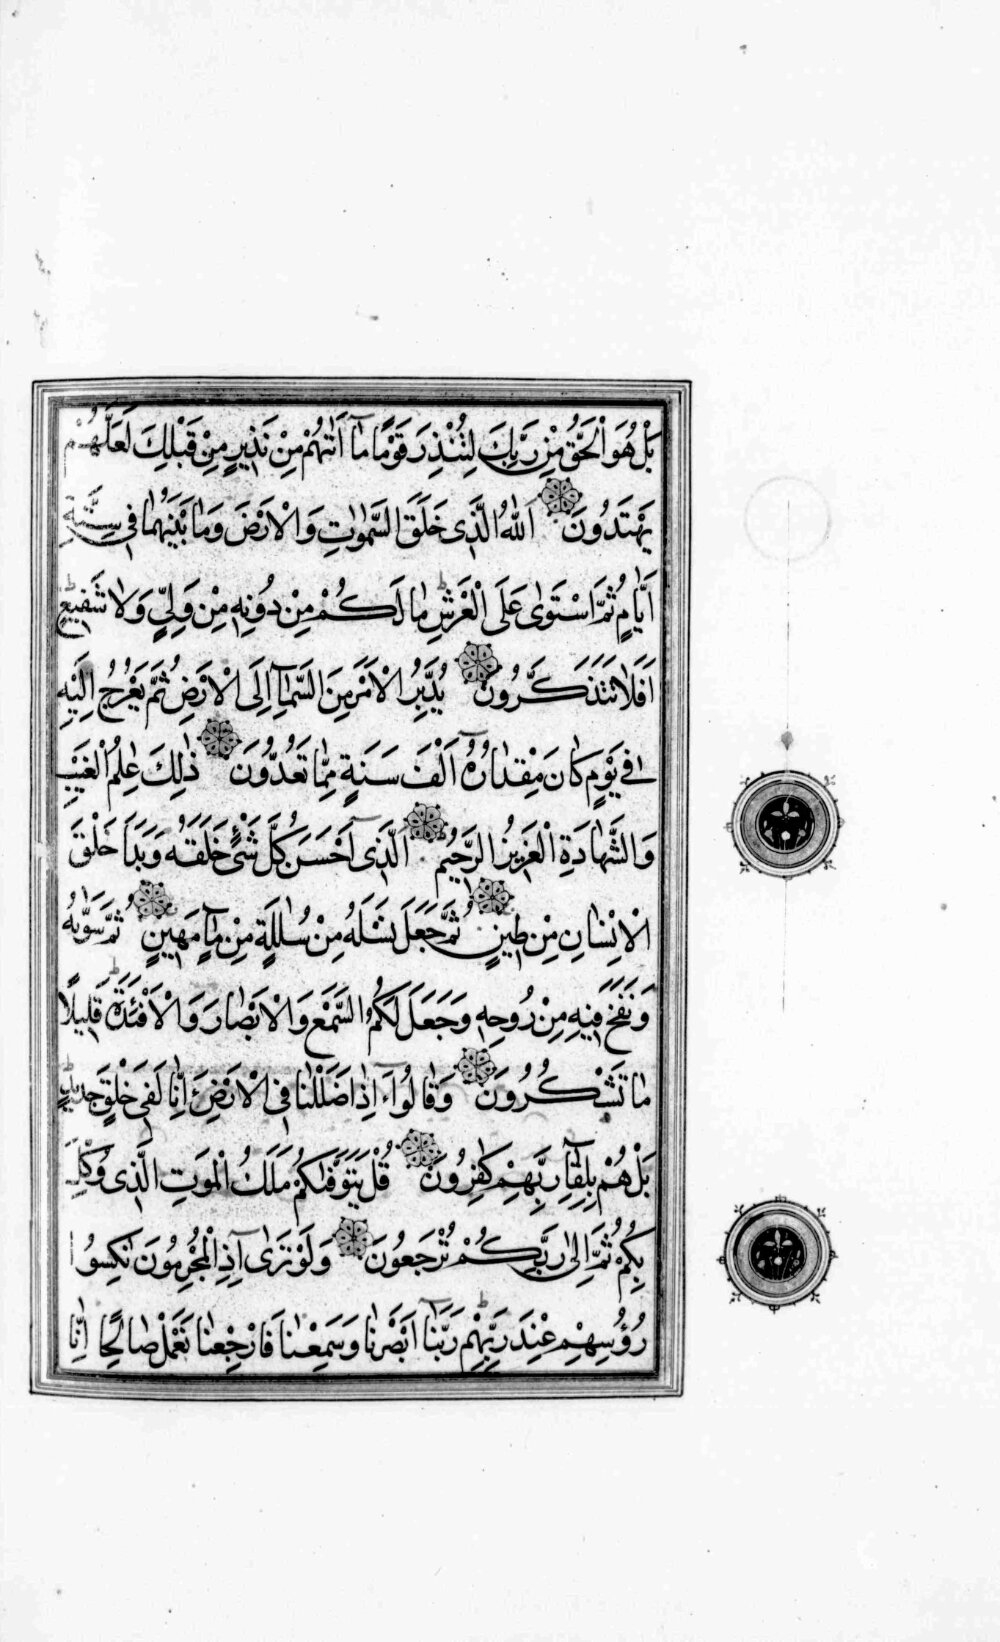 بَلْ هُوَ الْحَقُّ مِنْ رَبِّكَ لِتُنْذِرَ قَوْمًا مَا آتٰيهُمْ مِنْ نَذِيرٍ مِنْ قَبْلِكَ لَعَلَّهُمْ
يَهْتَدُونَ اَللّٰهُ الَّذِى خَلَقَ السَّمٰوَاتِ وَالْاَرْضَ وَمَا بَيْنَهُمَا فِى سِتَّةِ
اَيَّامٍ ثُمَّ اسْتَوٰى عَلَى الْعَرْشِ مَا لَكُمْ مِنْ دُونِهِ مِنْ وَلِىٍّ وَلَا شَفِيعٍ
اَفَلَا تَتَذَكَّرُونَ يُدَبِّرُ الْاَمْرَ مِنَ السَّمَآءِ اِلَى الْاَرْضِ ثُمَّ يَعْرُجُ اِلَيْهِ
فِى يَوْمٍ كَانَ مِقْدَارُهُٓ اَلْفَ سَنَةٍ مِمَّا تَعُدُّونَ ذٰلِكَ عَالِمُ الْغَيْبِ
وَالشَّهَادَةِ الْعَزِيزُ الرَّحِيمُ اَلَّذِىٓ اَحْسَنَ كُلَّ شَىْءٍ خَلَقَهُ وَبَدَاَ خَلْقَ
الْاِنْسَانِ مِنْ طِينٍ ثُمَّ جَعَلَ نَسْلَهُ مِنْ سُلَالَةٍ مِنْ مَآءٍ مَهِينٍ ثُمَّ سَوّٰيهُ
وَنَفَخَ فِيهِ مِنْ رُوحِهِ وَجَعَلَ لَكُمُ السَّمْعَ وَالْاَبْصَارَ وَالْاَفْئِدَةَ قَلِيلًا
مَا تَشْكُرُونَ وَقَالُٓوا ءَاِذَا ضَلَلْنَا فِى الْاَرْضِ ءَاِنَّا لَفِى خَلْقٍ جَدِيدٍ
بَلْ هُمْ بِلِقَآءِ رَبِّهِمْ كَافِرُونَ قُلْ يَتَوَفّٰيكُمْ مَلَكُ الْمَوْتِ الَّذِى وُكِّلَ
بِكُمْ ثُمَّ اِلٰى رَبِّكُمْ تُرْجَعُونَ وَلَوْ تَرٰٓى اِذِ الْمُجْرِمُونَ نَاكِسُوا
رُؤُسِهِمْ عِنْدَ رَبِّهِمْ رَبَّنَٓا اَبْصَرْنَا وَسَمِعْنَا فَارْجِعْنَا نَعْمَلْ صَالِحًا اِنَّا